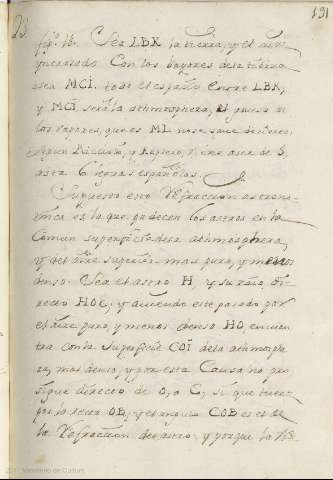 23.
191
fig.ª 18. Sea LBK, la tierra, y el aire
yncensado con los bapores de la tierra
sea MCI. todo el espasio entre LBK,
y MCI, sera la athmosphera, el grueso de
los vapores, que es ML no se save de cierto,
segun Ricciolo, y Keplero, tiene asta de 5,
asta 6 leguas españolas.
Supuesto esto Refraccion astrono-
mica es la que padecen los astros en la
comun superficie de la athmosphera,
y del aire superior mas puro, y menos
denso. Sea el astro H y su raio di-
recto HOC, y aviendo este pasado por
el aire puro, y menos denso HO, encuen
tra con la superficie COI de la athmosphe
ra, mas denso, y por esta causa no pro
sigue directo de O, a C, si que tuer-
ce por la recta OB, y el angulo COB es el de
la Refraccion del astro, y porque la Re
Ministerio de Cultura